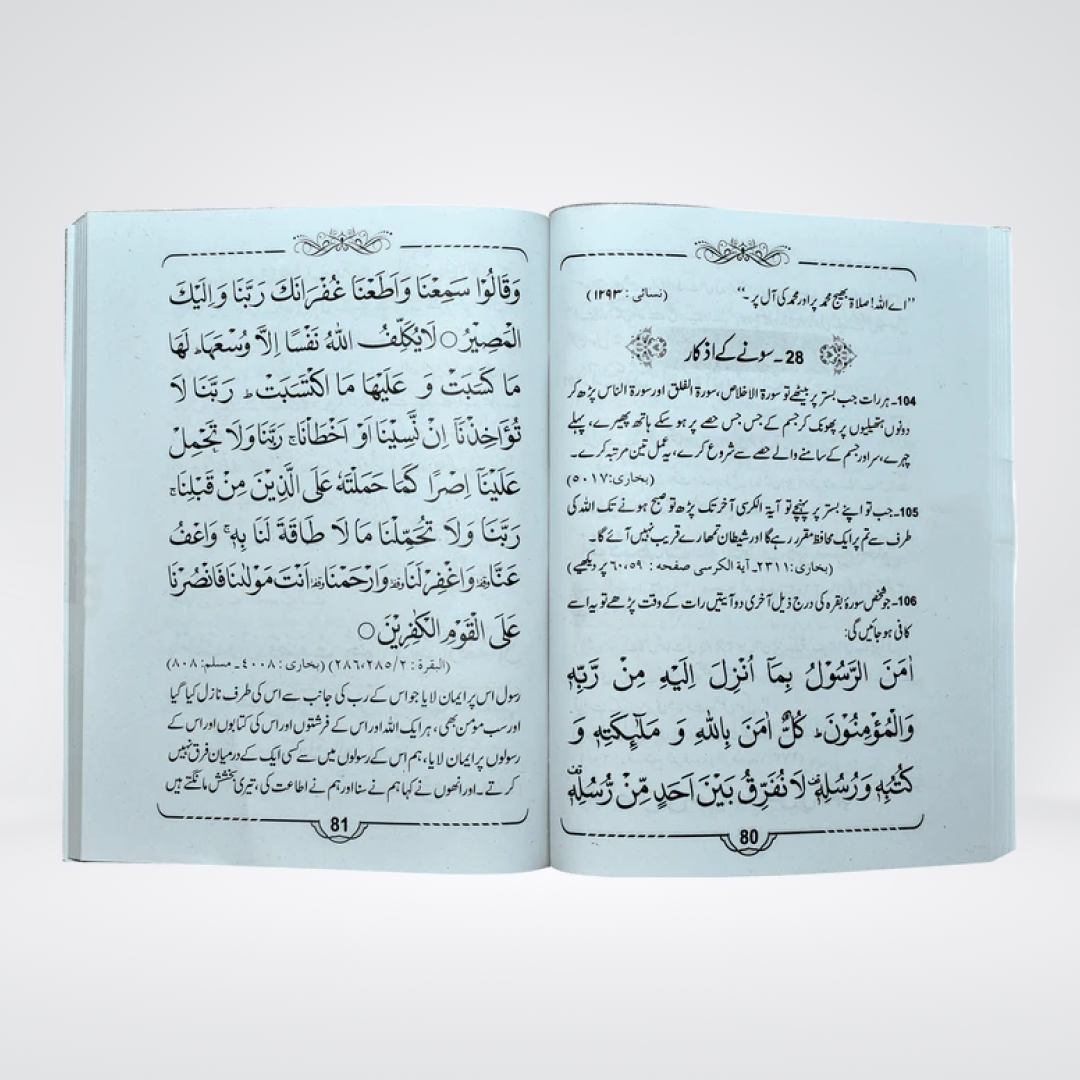 ”اے اللہ! صلاۃ بھیج محمد پر اور محمد کی آل پر۔“ (نسائی : ۱۲۹۳)
28۔ سونے کے اذکار
104۔ ہر رات جب بستر پر بیٹھے تو سورۃ الاخلاص، سورۃ الفلق اور سورۃ الناس پڑھ کر
دونوں ہتھیلیوں پر پھونک کر جسم کے جس جس حصے پر ہو سکے ہاتھ پھیرے، پہلے
چہرے، سر اور جسم کے سامنے والے حصے سے شروع کرے، یہ عمل تین مرتبہ کرے۔
(بخاری: ۵۰۱۷)
105۔ جب تو اپنے بستر پر پہنچے تو آیۃ الکرسی آخر تک پڑھ تو صبح ہونے تک اللہ کی
طرف سے تم پر ایک محافظ مقرر رہے گا اور شیطان تمھارے قریب نہیں آئے گا۔
(بخاری: ۲۳۱۱۔ آیۃ الکرسی صفحہ : ۶۰،۵۹ پر دیکھیے)
106۔ جو شخص سورۂ بقرہ کی درج ذیل آخری دو آیتیں رات کے وقت پڑھے تو یہ اسے
کافی ہو جائیں گی:
اٰمَنَ الرَّسُوْلُ بِمَآ اُنْزِلَ اِلَيْهِ مِنْ رَّبِّهٖ
وَالْمُؤْمِنُوْنَ ؕ كُلٌّ اٰمَنَ بِاللّٰهِ وَ مَلٰٓئِكَتِهٖ وَ
كُتُبِهٖ وَرُسُلِهٖ ۫ لَا نُفَرِّقُ بَيْنَ اَحَدٍ مِّنْ رُّسُلِهٖ ۫
80
وَقَالُوْا سَمِعْنَا وَاَطَعْنَا غُفْرَانَكَ رَبَّنَا وَاِلَيْكَ
الْمَصِيْرُ ○ لَا يُكَلِّفُ اللّٰهُ نَفْسًا اِلَّا وُسْعَهَا ؕ لَهَا
مَا كَسَبَتْ وَ عَلَيْهَا مَا اكْتَسَبَتْ ؕ رَبَّنَا لَا
تُؤَاخِذْنَآ اِنْ نَّسِيْنَآ اَوْ اَخْطَاْنَا ۚ رَبَّنَا وَلَا تَحْمِلْ
عَلَيْنَآ اِصْرًا كَمَا حَمَلْتَهٗ عَلَى الَّذِيْنَ مِنْ قَبْلِنَا ۚ
رَبَّنَا وَلَا تُحَمِّلْنَا مَا لَا طَاقَةَ لَنَا بِهٖ ۚ وَاعْفُ
عَنَّا ۥ وَاغْفِرْ لَنَا ۥ وَارْحَمْنَا ۥ اَنْتَ مَوْلٰىنَا فَانْصُرْنَا
عَلَى الْقَوْمِ الْكٰفِرِيْنَ ○
(البقرۃ : ۲/۲۸۵، ۲۸۶) (بخاری : ۴۰۰۸۔ مسلم: ۸۰۸)
رسول اس پر ایمان لایا جو اس کے رب کی جانب سے اس کی طرف نازل کیا گیا
اور سب مومن بھی، ہر ایک اللہ اور اس کے فرشتوں اور اس کی کتابوں اور اس کے
رسولوں پر ایمان لایا، ہم اس کے رسولوں میں سے کسی ایک کے درمیان فرق نہیں
کرتے۔ اور انھوں نے کہا ہم نے سنا اور ہم نے اطاعت کی، تیری بخشش مانگتے ہیں
81